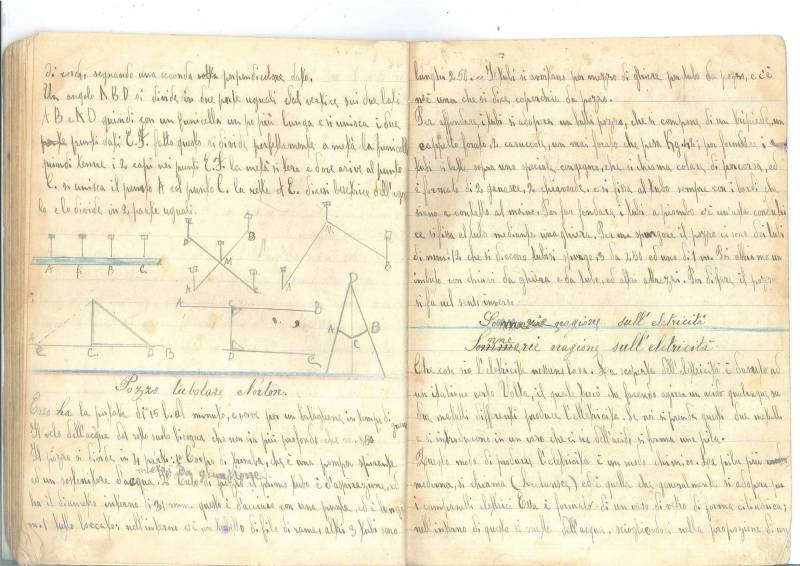 di corda, segnando una seconda volta perpendicolare dalla.
Un angolo A B D si divide in due parte uguali dal vertice sui due lati
A B e A D quindi con un funicella un po più lunga e si unisca i due
punti dati E. F. fatto questo si divide perfettamente a metà la funicella
quindi tenere i 2 capi nei punti E. F. la metà si tere e dove ariva al punto
C. si unisca il punto A col punto C. la retta A C. dicesi bisetrice dell'angolo
lo e lo divide in 2 parte uguali.
A F. B C.
D C M A B
M A D
A B
C D C
D A B C
C C. D B
Pozzo tubolare Norton.
Esso ha la portata di 15 l. al minuto, e serve per un battaglione in tempo di guerra
Il velo dell'acqua del sotto suolo bisogna che non sia più profondo che m. 7,50
Il pozzo si divide in 4 parti: 1° Corpo di pompa, che è una pompa aspirante
mezzo da giunzione
ed un sostenitore d'acqua. Il tubo di pozzo il primo tubo è d'aspirazione, ed
ha il diametro interno di 35 mm questo è d'acciaio con una punta, ed è lungo
m. 1 tutto toccato: nell'interno c'è un tubetto di filo di rame, altri 3 tubi sono
lunghi 2.50. - I tubi si avvitano per mezzo di ghiere per tubo da pozzo, e c'è
n'è una che si dice coperchio da pozzo.
Per affondare i tubi si adopera un batti pozzo, che si compone di un tripiede, un
cappello forato, 2 carrucole, un maio forato che pesa Kg. 45; per fermare i
tubi si batte sopra uno speciale congegno, che si chiama colare di percorsa, ed
è formato di 2 ganasce, 2 chiavarde, e si fissa al tubo sempre con i bordi che
siano a contatto al maione. Per far fondare i tubi a piombo c'è un'asta conduttri
ce si fissa al tubo mediante una ghiera. Per spurgare il pozzo ci sono dei tubi
di mm. 12 che si dicono tubi di spurgo, 3 da 2,50 ed uno di 1 m. Poi abbiamo un
imbuto con chiavi da ghiera e da tubo, ed altri attrezzi. Per disfare il pozzo
si fa nel senti inverso
nagione sull'eletricità
nagione sull'eletricità
Che cosa sia l'elettricità nessuno lo sa. La scoperta dell'elettricità è dovuta ad
un italiano certo Volta, il quale trovò che facendo agire un acido qualunque su
due metalli differenti produce l'elettricità. Se noi si prende questi due metalli
e si introducono in un vaso che ci sia dell'acido si forma una pila.
Questo modo di produrre l'elettricità è un modo chimico. La pila più
moderna, si chiama (Leclanse) ed è quella che generalmente si adopera per
i campanelli elettrici. Essa è formata di un vaso di vetro di forma cilindrica;
nell'interno di questo si mette dell'acqua, sciogliendovi nella proporzione di un